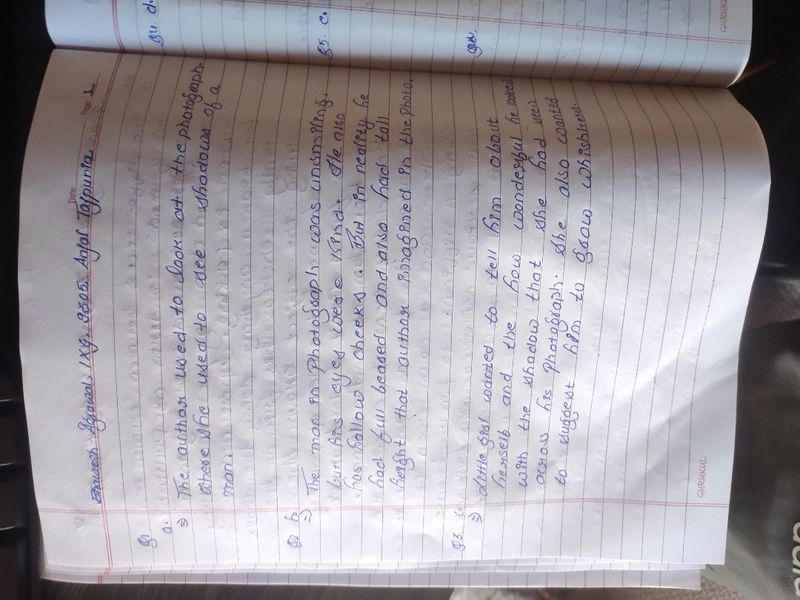 Agrawal. IXG. 9705. Tajpuria
Date
Page 1
Q1
a.
⇒ The author used to look at the photograph.
where she used to see shadows of a
man.
Q2 b.
⇒ The man in photograph was unsmiling.
but his eyes were kind. He also
has hallow cheeks. But in reality he
had full beared and also had tall
height that author imagined in the photo.
Q3 c.
⇒ Little girl wanted to tell him about
himself and the how wonderful he looked
with the shadow that she had seen
across his photograph. she also wanted
to suggest him to grow whishkers
GURUKUL
Q4. d.
Q5. e.
GURUKUL